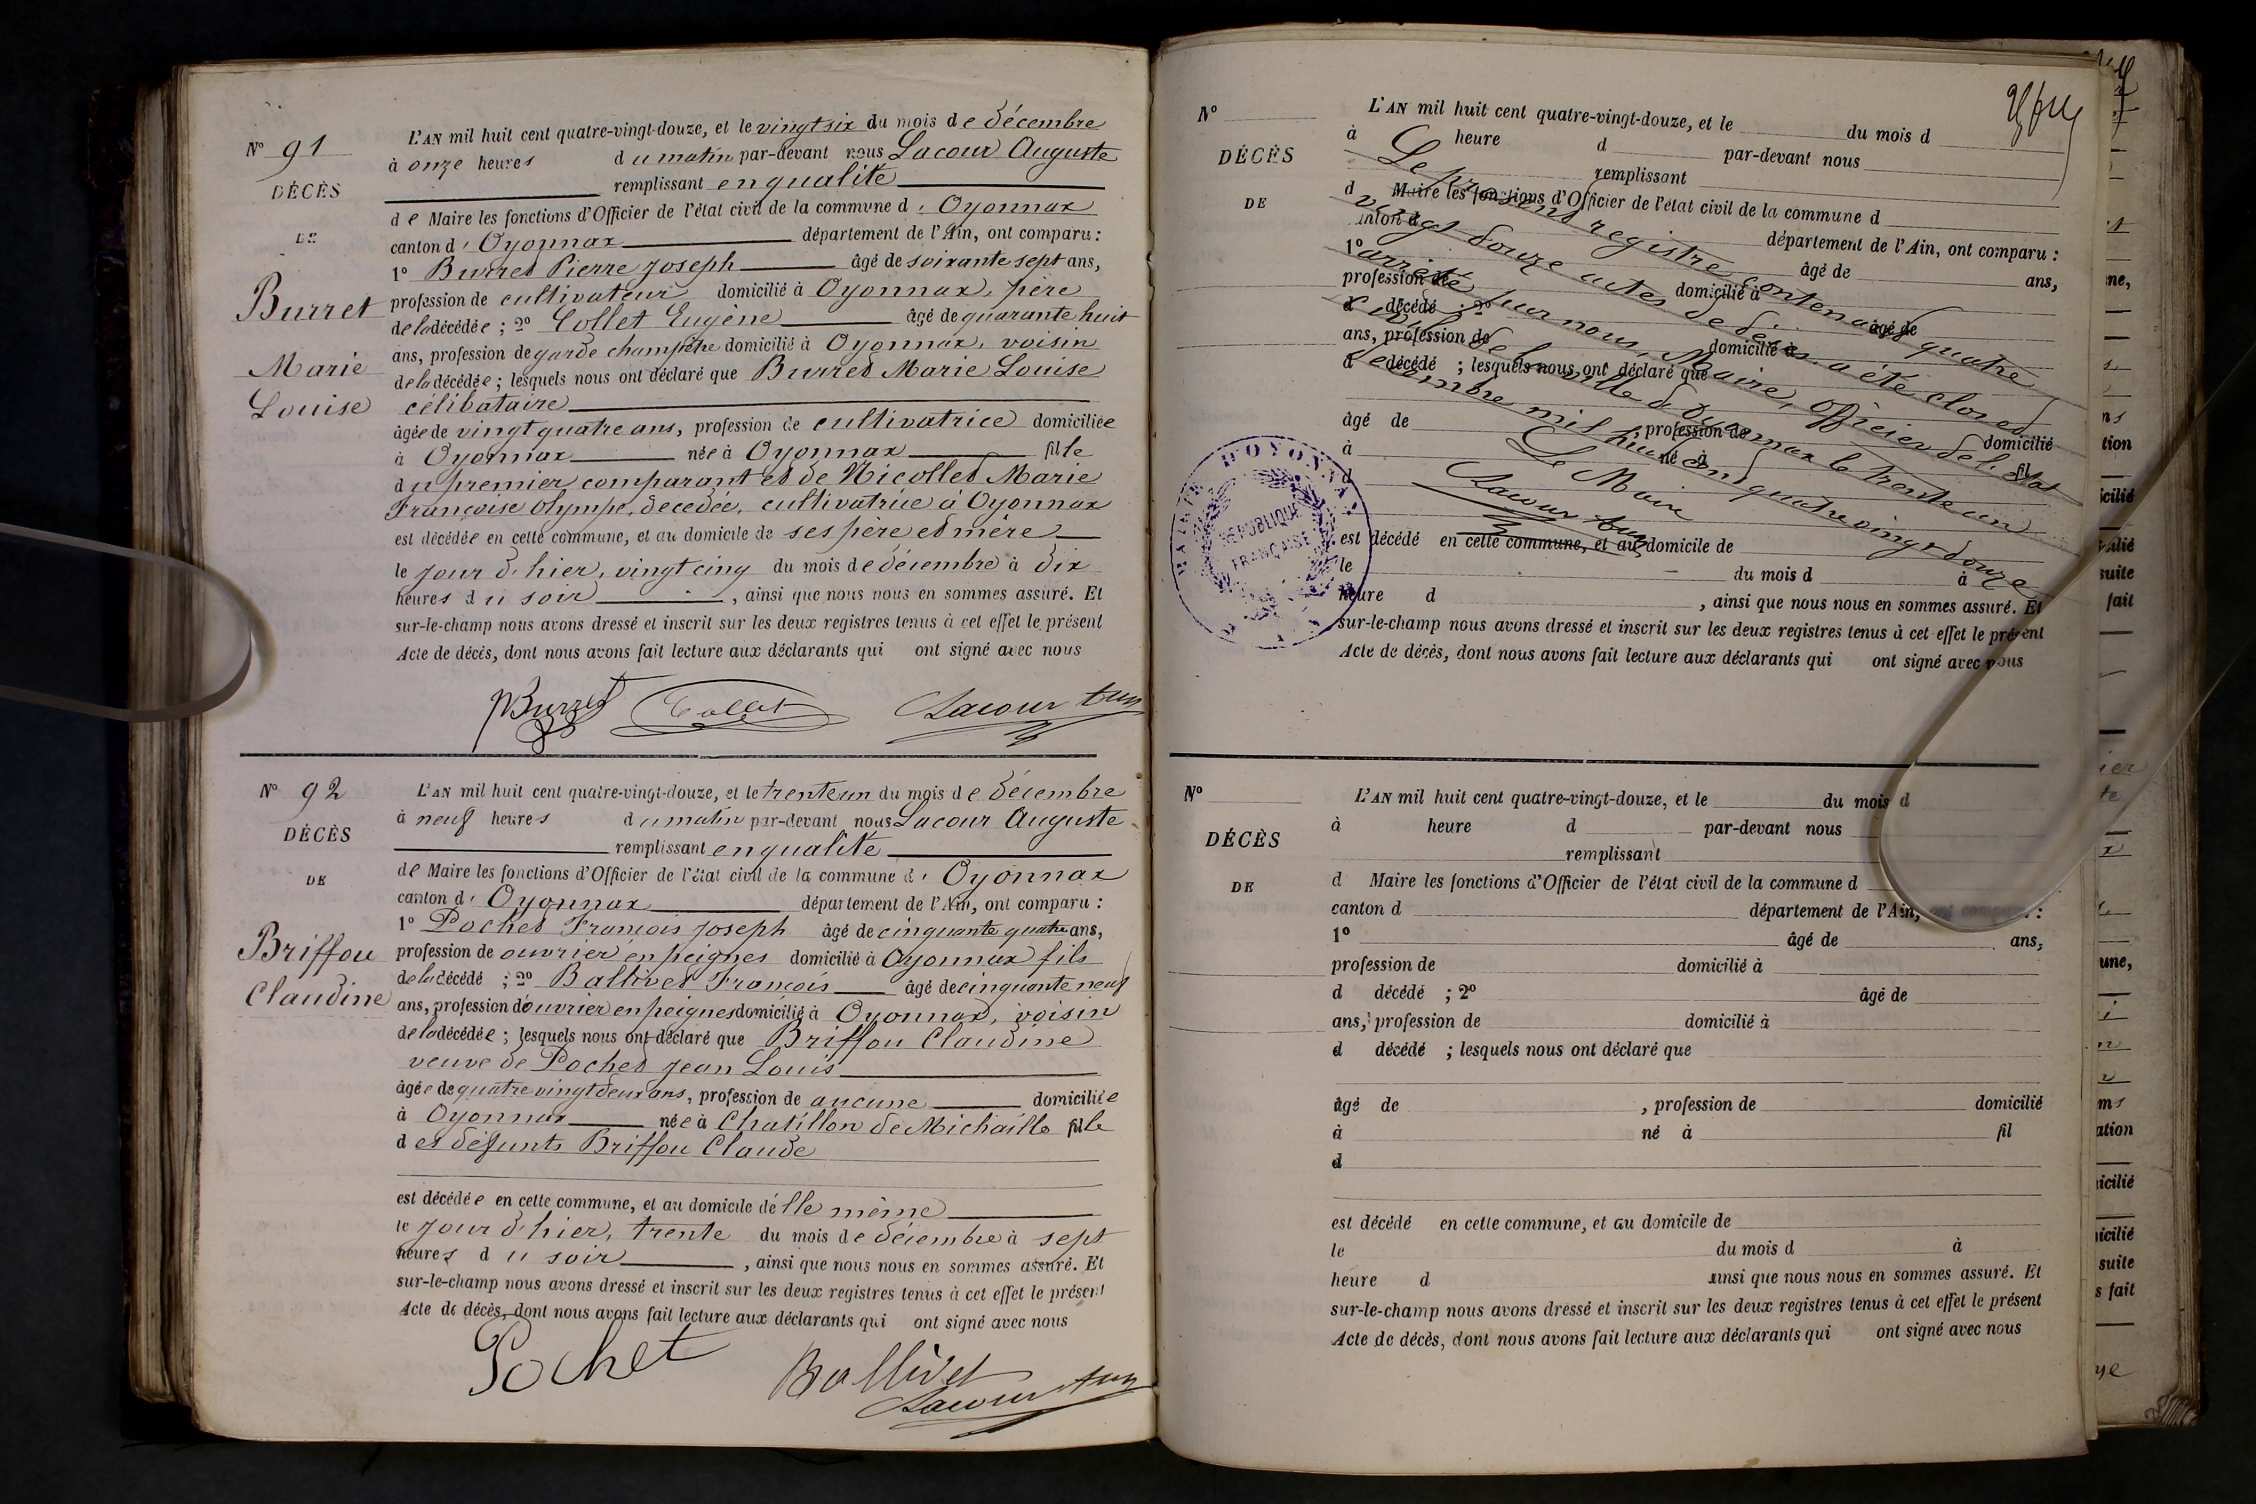 N° 91
DÉCÈS
DE
Burret
Marie
Louise
L'AN mil huit cent quatre-vingt-douze, et le vingt six du mois de décembre
à onze heures du matin par-devant nous Lacour Auguste
remplissant en qualité
de Maire les fonctions d'Officier de l'état civil de la commune d'Oyonnax
canton d'Oyonnax département de l'Ain, ont comparu :
1° Burret Pierre Joseph âgé de soixante sept ans,
profession de cultivateur domicilié à Oyonnax, père
de la décédée ; 2° Collet Eugène âgé de quarante huit
ans, profession de garde champêtre domicilié à Oyonnax, voisin
de la décédée ; lesquels nous ont déclaré que Burret Marie Louise
célibataire
âgée de vingt quatre ans, profession de cultivatrice domiciliée
à Oyonnax née à Oyonnax fille
du premier comparant et de Nicollet Marie
Françoise Olympe, decedée, cultivatrice à Oyonnax
est décédée en cette commune, et au domicile de ses père et mère
le jour d'hier, vingt cinq du mois de décembre à dix
heures du soir , ainsi que nous nous en sommes assuré. Et
sur-le-champ nous avons dressé et inscrit sur les deux registres tenus à cet effet le présent
Acte de décès, dont nous avons fait lecture aux déclarants qui ont signé avec nous
Burret Collet Lacour Aug
N° 92
DÉCÈS
DE
Briffou
Claudine
L'AN mil huit cent quatre-vingt-douze, et le trente un du mois de décembre
à neuf heures du matin par-devant nous Lacour Auguste
remplissant en qualité
de Maire les fonctions d'Officier de l'état civil de la commune d'Oyonnax
canton d'Oyonnax département de l'Ain, ont comparu :
1° Pochet François Joseph âgé de cinquante quatre ans,
profession de ouvrier en peignes domicilié à Oyonnax fils
de la décédé ; 2° Ballivet François âgé de cinquante neuf
ans, profession d'ouvrier en peignes domicilié à Oyonnax, voisin
de la décédée ; lesquels nous ont déclaré que Briffou Claudine
veuve de Pochet Jean Louis
âgée de quatre vingt deux ans, profession de aucune domiciliée
à Oyonnax née à Chatillon de Michaille fille
des défunts Briffou Claude
est décédée en cette commune, et au domicile d'elle même
le jour d'hier, trente du mois de décembre à sept
heures du soir , ainsi que nous nous en sommes assuré. Et
sur-le-champ nous avons dressé et inscrit sur les deux registres tenus à cet effet le présent
Acte de décès, dont nous avons fait lecture aux déclarants qui ont signé avec nous
Pochet Ballivet
Lacour Aug
N°
DÉCÈS
DE
L'AN mil huit cent quatre-vingt-douze, et le du mois d
à heure d par-devant nous
remplissant
d Maire les fonctions d'Officier de l'état civil de la commune d
canton d département de l'Ain, ont comparu :
1° âgé de ans,
profession de domicilié à
d décédé ; 2° âgé de
ans, profession de domicilié à
d décédé ; lesquels nous ont déclaré que
âgé de , profession de domicilié
à né à fil
d
est décédé en cette commune, et au domicile de
le du mois d à
heure d , ainsi que nous nous en sommes assuré. Et
sur-le-champ nous avons dressé et inscrit sur les deux registres tenus à cet effet le présent
Acte de décès, dont nous avons fait lecture aux déclarants qui ont signé avec nous
Le présent registre contenant quatre
vingt douze actes de décès a été clos et
arrêté par nous, Maire, Officier de l'état
civil de la ville d'Oyonnax le trente un
décembre mil huit cent quatre vingt douze
Le Maire
Lacour Aug
MAIRIE D'OYONNAX
RÉPUBLIQUE
FRANÇAISE
N°
DÉCÈS
DE
L'AN mil huit cent quatre-vingt-douze, et le du mois d
à heure d par-devant nous
remplissant
d Maire les fonctions d'Officier de l'état civil de la commune d
canton d département de l'Ain, ont comparu :
1° âgé de ans,
profession de domicilié à
d décédé ; 2° âgé de
ans, profession de domicilié à
d décédé ; lesquels nous ont déclaré que
âgé de , profession de domicilié
à né à fil
d
est décédé en cette commune, et au domicile de
le du mois d à
heure d ainsi que nous nous en sommes assuré. Et
sur-le-champ nous avons dressé et inscrit sur les deux registres tenus à cet effet le présent
Acte de décès, dont nous avons fait lecture aux déclarants qui ont signé avec nous